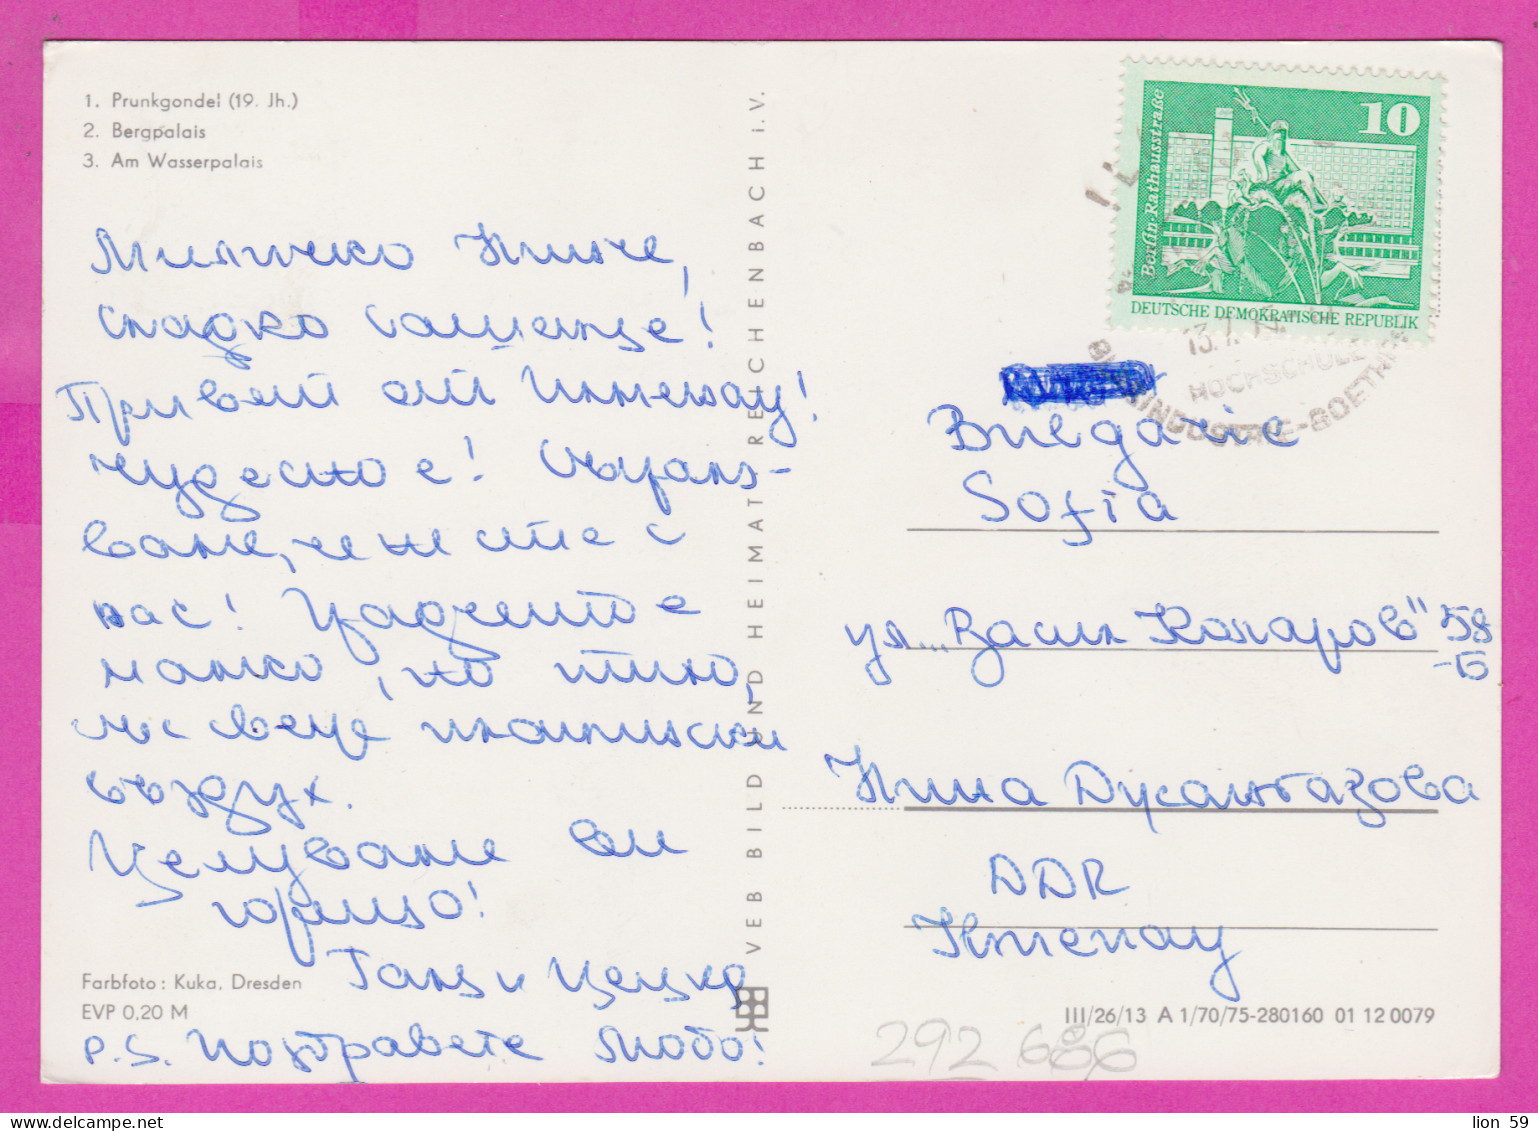 1. Prunkgondel (19. Jh.)
2. Bergpalais
3. Am Wasserpalais
сладко
Привет от Илменау!
Чудесно е!
ване, че не сте с
нас! Градчето е
малко, но тихо,
въздух.
Целуваме ви
горещо!
P.S. Поздравете Любо!
Farbfoto: Kuka, Dresden
EVP 0,20 M
VEB BILD UND HEIMAT REICHENBACH i. V.
10
Berlin · Rathausstraße
DEUTSCHE DEMOKRATISCHE REPUBLIK
HOCHSCHULE
Bulgarie
Sofia
ул. „Васил Коларов" 58
-Б
Нина
DDR
Ilmenau
III/26/13 A 1/70/75-280160 01 12 0079
292 686
lion 59